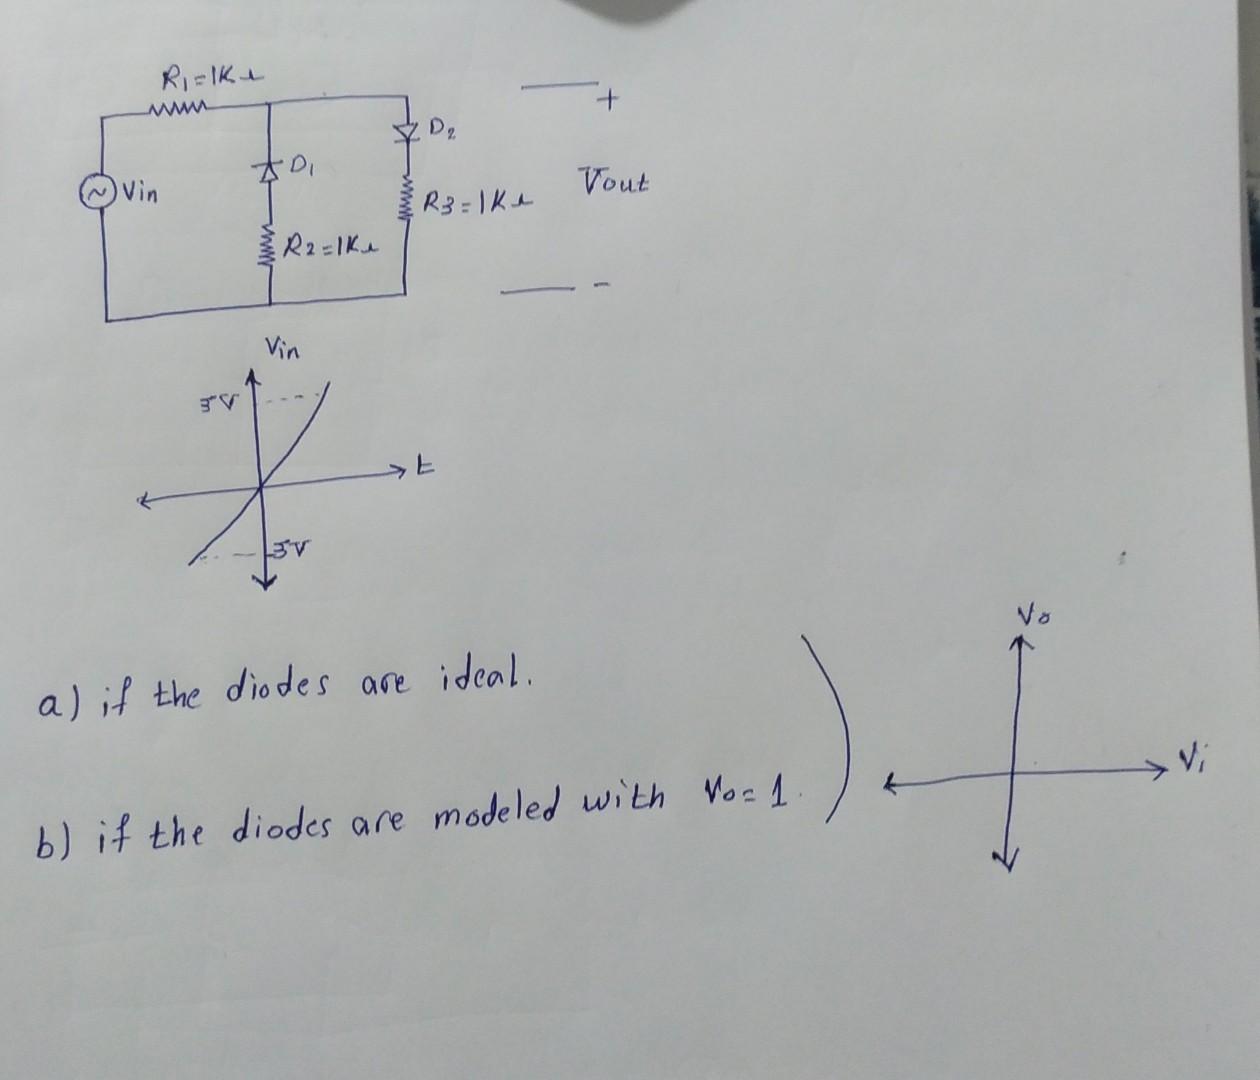 R₁=1K Ω
+
D₂
D₁
Vin
Vout
R3=1K Ω
R2=1K Ω
-
Vin
3V
t
-3V
Vo
a) if the diodes are ideal.
Vi
b) if the diodes are modeled with Vo=1.